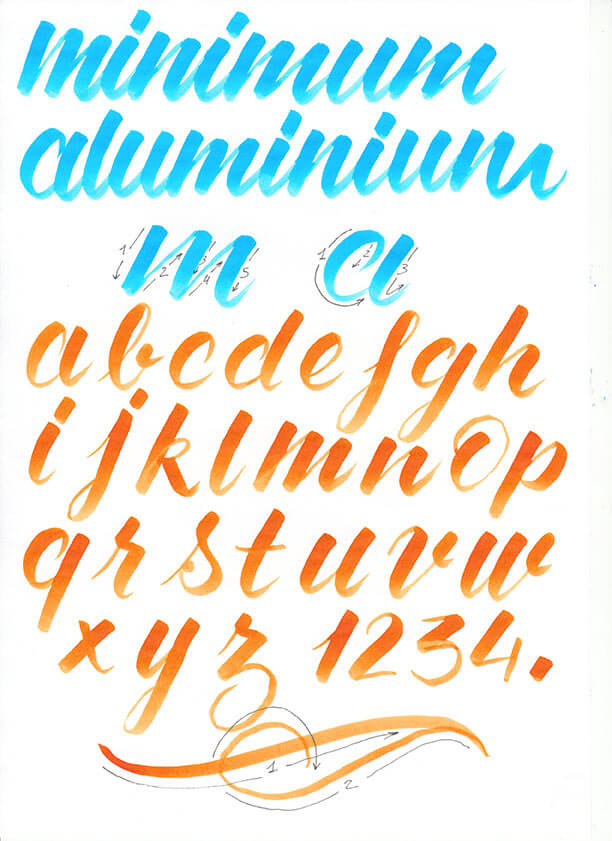 minimum
aluminium
1 2 3 4 5 m 1 a 2 3
a b c d e f g h
i j k l m n o p
q r s t u v w
x y z 1 2 3 4 .
1 2